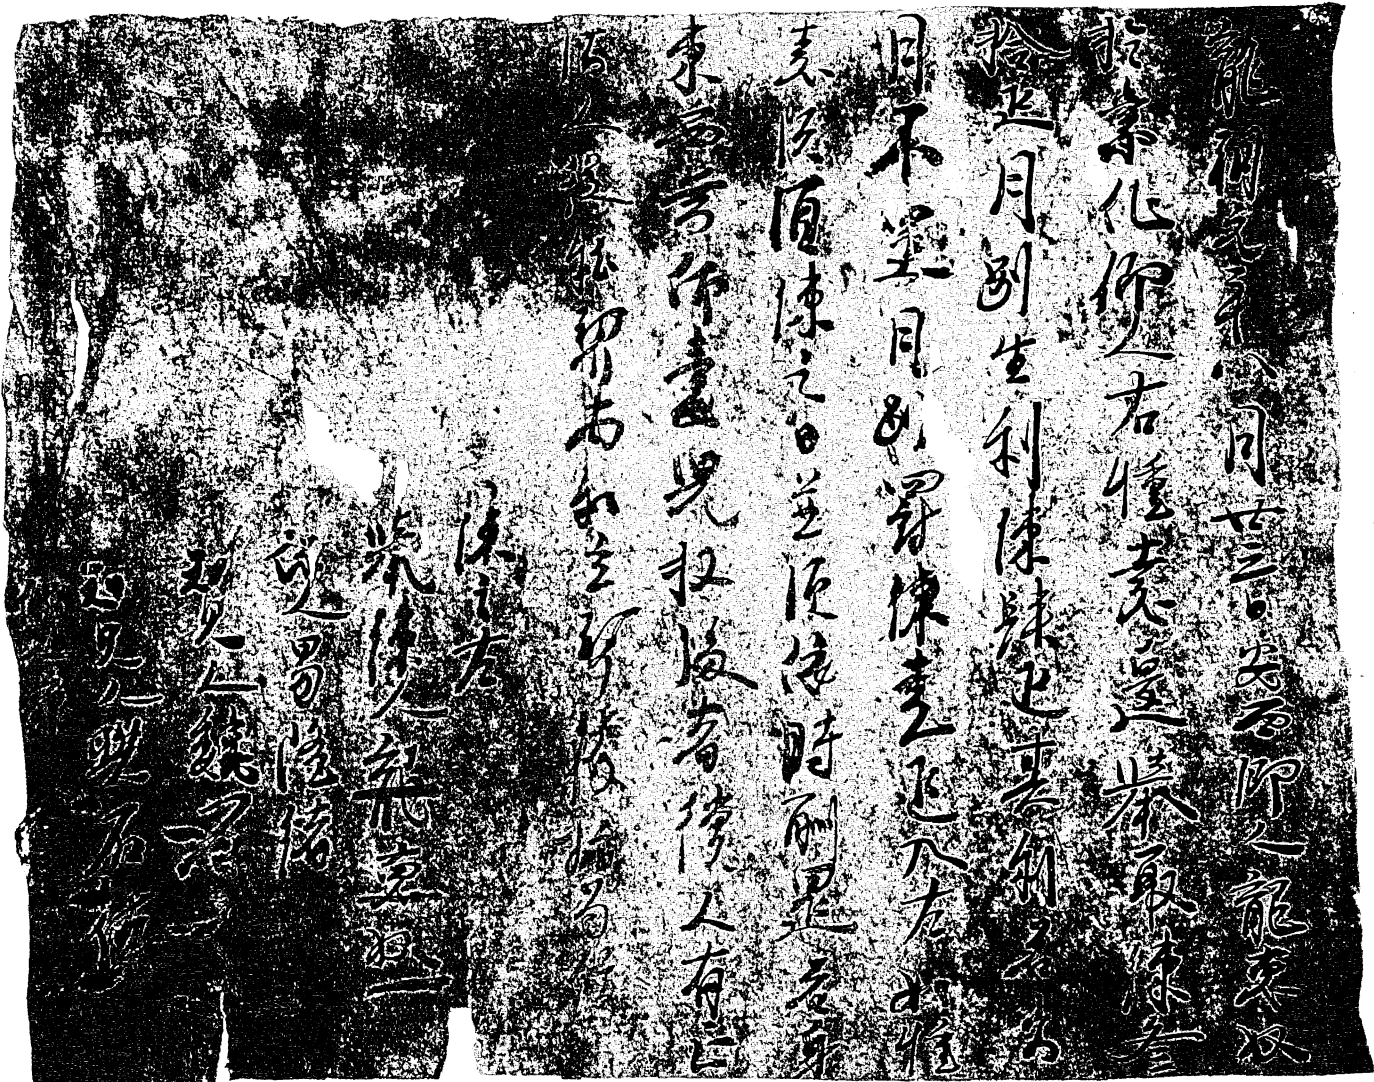 龍朔元年八月廿三日安西鄉人龍惠奴
於崇化鄉人右憧憙邊舉取練叁
拾疋月別生利練肆疋其利若出
月不還月別罰練壹疋入左如憧
憙須須練之日並須依時酬還若身
東西無仰妻兒收後者償人有正
法人從私契兩和立契獲指為信
練主左
舉練人龍惠奴一
保人男隆緒
知見人魏石
知見人樊石德